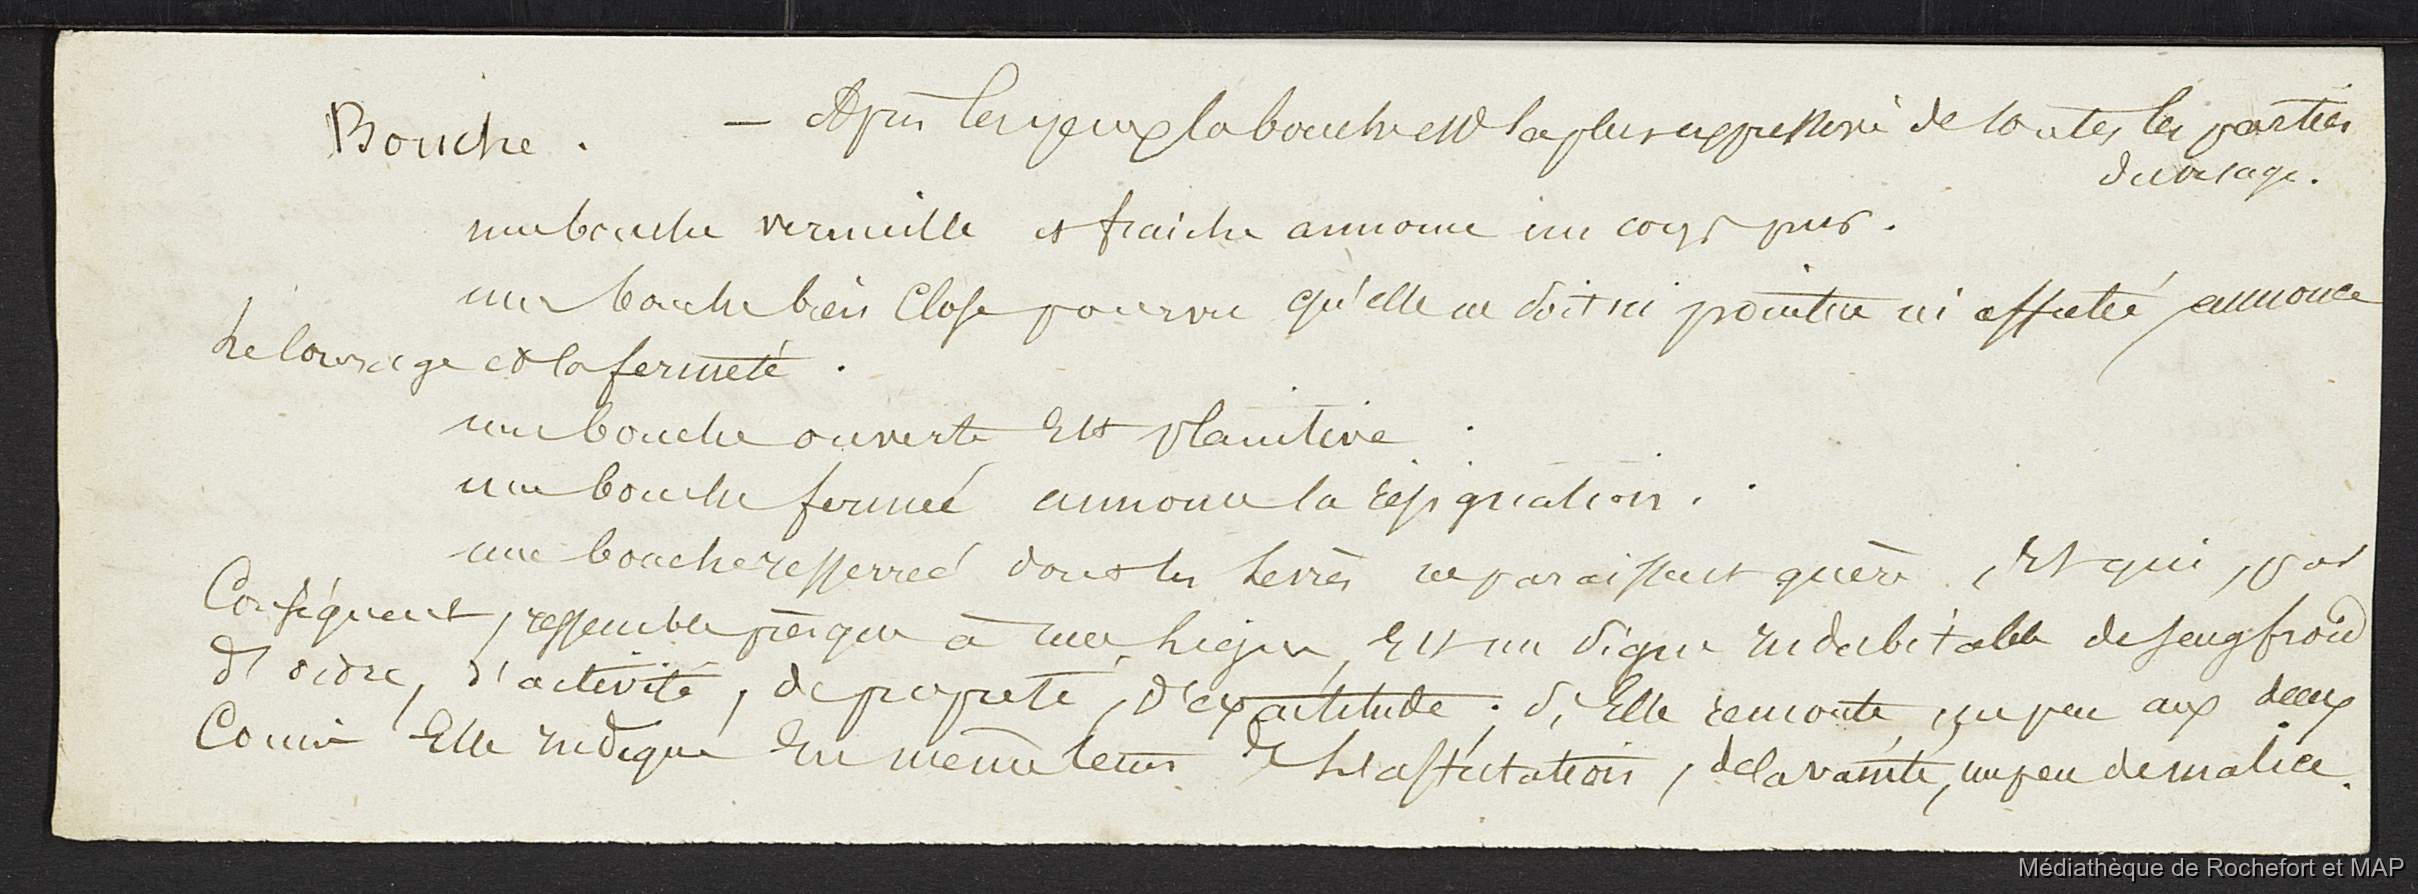 Bouche. — Après les yeux la bouche est la plus expressive de toutes les parties
du visage.
une bouche vermeille et fraiche annonce un corps pur.
une bouche bien close pourvu qu'elle ne soit ni pointue ni affectée, annonce
le courage et la fermeté.
une bouche ouverte est plaintive.
une bouche fermée annonce la résignation.
une bouche resserrée dont les levrès ne paraissent guère, et qui, par
Conséquent, ressemble presque à une ligne, est un signe indubitable de sang froid
d'ordre, d'activité, de propreté, d'exactitude; si Elle remonte un peu aux deux
Coins Elle indique en même tems de l'affectation, de la vanité, un peu de malice.
Médiathèque de Rochefort et MAP